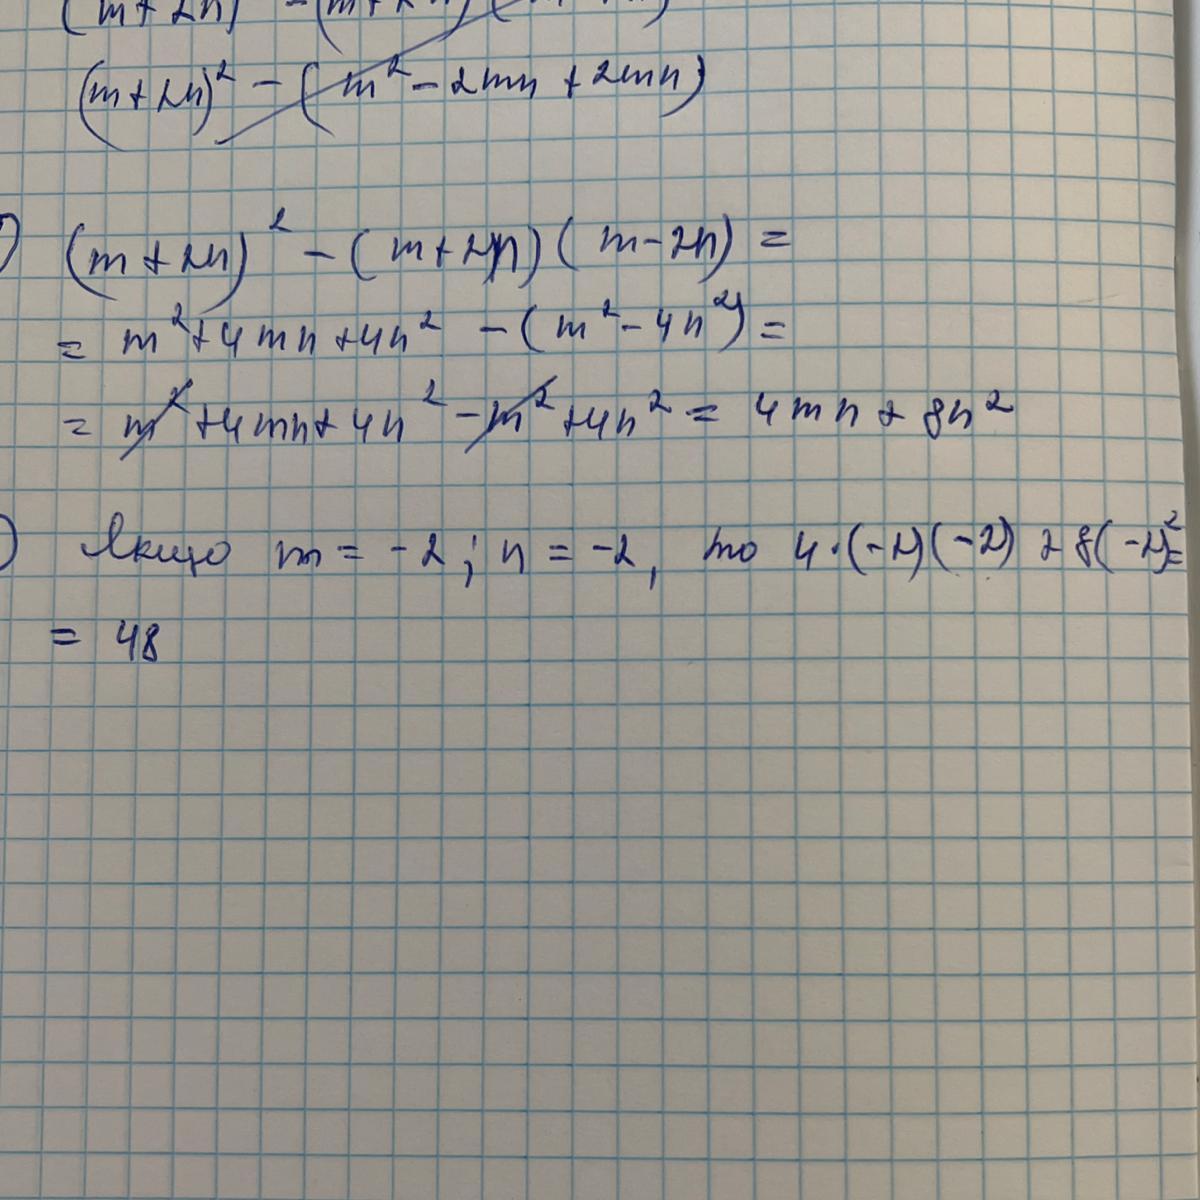 (m+2n)² - (m² - 2mn + 2mn)
(m + 2n)² - (m+2n)(m-2n) =
= m² + 4mn + 4n² - (m² - 4n²) =
= m² + 4mn + 4n² - m² + 4n² = 4mn + 8n²
) Якщо m = -2; n = -2, то 4·(-2)(-2) + 8(-2)² =
= 48